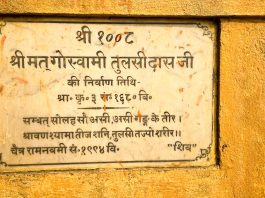 श्री १००८
श्रीमत्गोस्वामी तुलसीदास जी
की निर्वाण तिथि-
श्रा॰ कृ॰ ३ स॰ १६८० वि॰
सम्बत् सोलह सौ असी, असी गङ्ग के तीर।
श्रावण श्यामा तीज शनि, तुलसी तज्यो शरीर।।
चैत्र रामनवमी सं॰ १९९४ वि॰ "शिव"